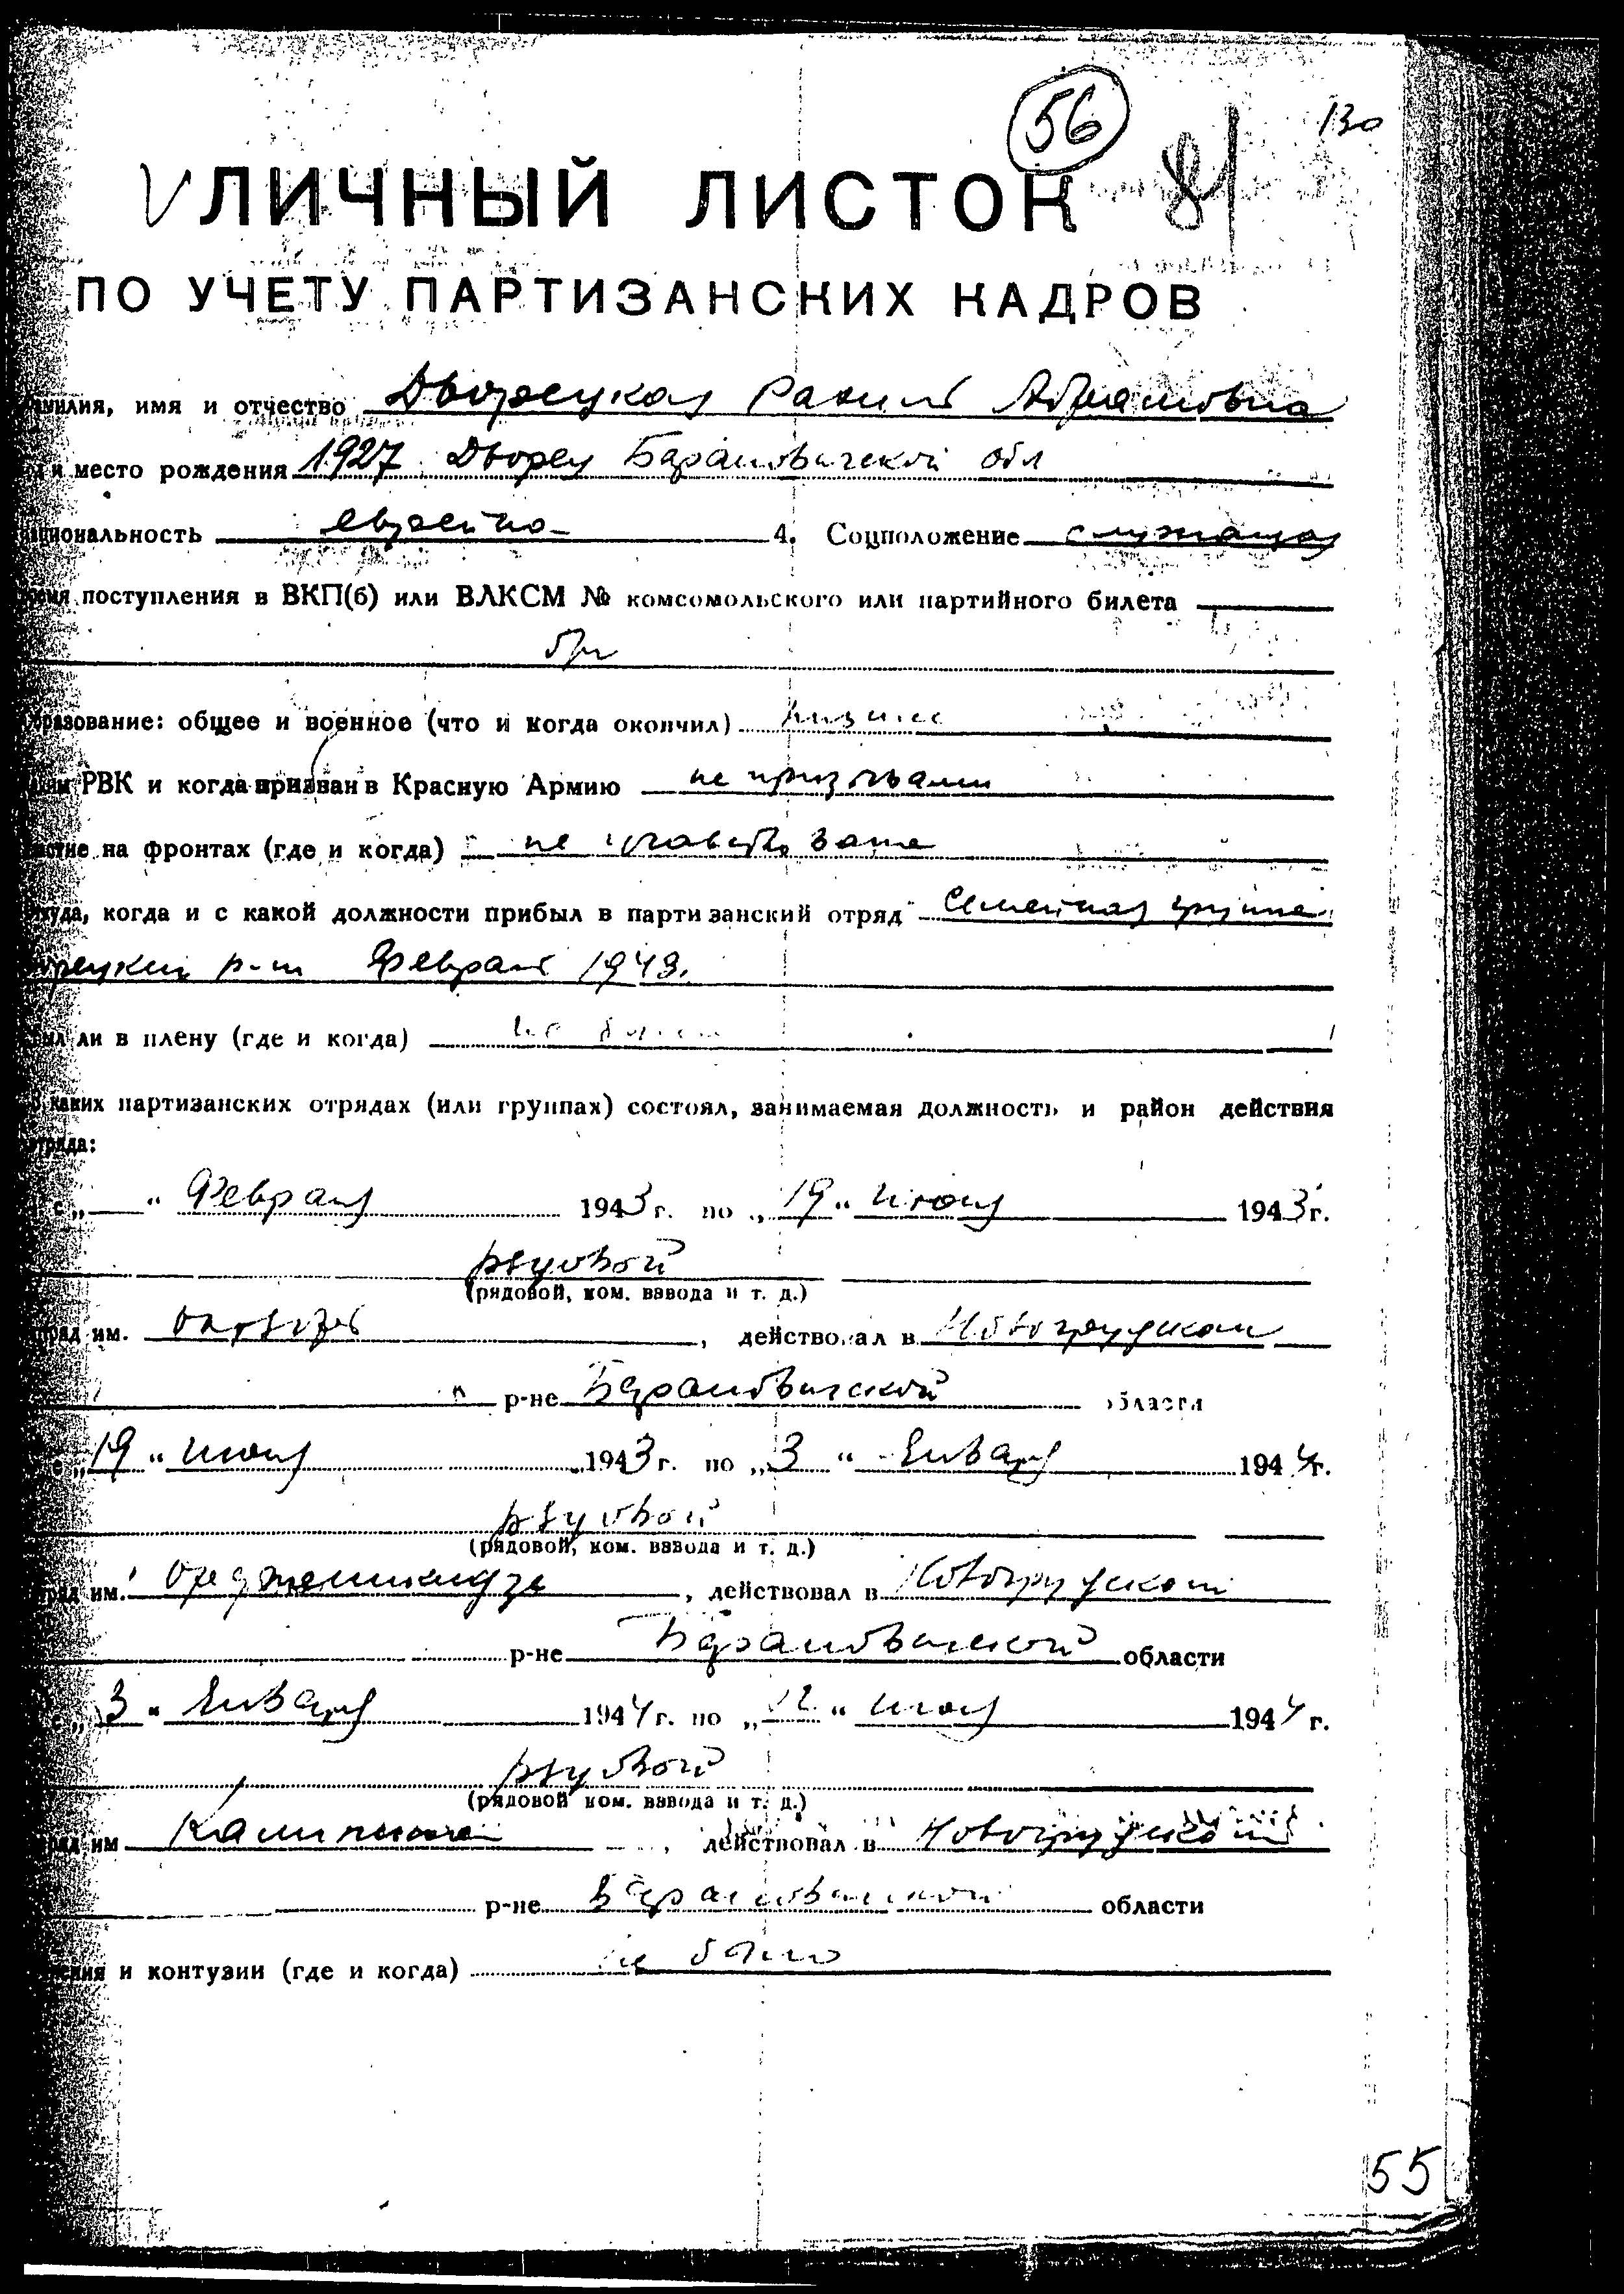 56
81
130
ЛИЧНЫЙ ЛИСТОК
ПО УЧЕТУ ПАРТИЗАНСКИХ КАДРОВ
Фамилия, имя и отчество Дворецкая Рахиль Абрамовна
и место рождения 1927 Дворец Барановичской обл
национальность еврейка 4. Соцположение служащая
время поступления в ВКП(б) или ВЛКСМ № комсомольского или партийного билета
б/п
Образование: общее и военное (что и когда окончил) низшее
РВК и когда призван в Красную Армию не призывали
участие на фронтах (где и когда) не участвовала
Откуда, когда и с какой должности прибыл в партизанский отряд Семейная группа
р-н Февраль 1943.
был ли в плену (где и когда) не была
В каких партизанских отрядах (или группах) состоял, занимаемая должность и район действия
отряда:
с „ “ Февраля 1943 г. по „19“ июня 1943 г.
рядовой
(рядовой, ком. взвода и т. д.)
отряд им. Октября, действовал в Новогрудском
р-не Барановичской области
с „19“ июня 1943 г. по „3“ Января 1944 г.
рядовой
(рядовой, ком. взвода и т. д.)
отряд им. Орджоникидзе, действовал в Новогрудском
р-не Барановичской области
с „3“ Января 1944 г. по „12“ июля 1944 г.
рядовой
(рядовой ком. взвода и т. д.)
отряд им Калинина, действовал в Новогрудском
р-не Барановичской области
и контузии (где и когда) не было
55